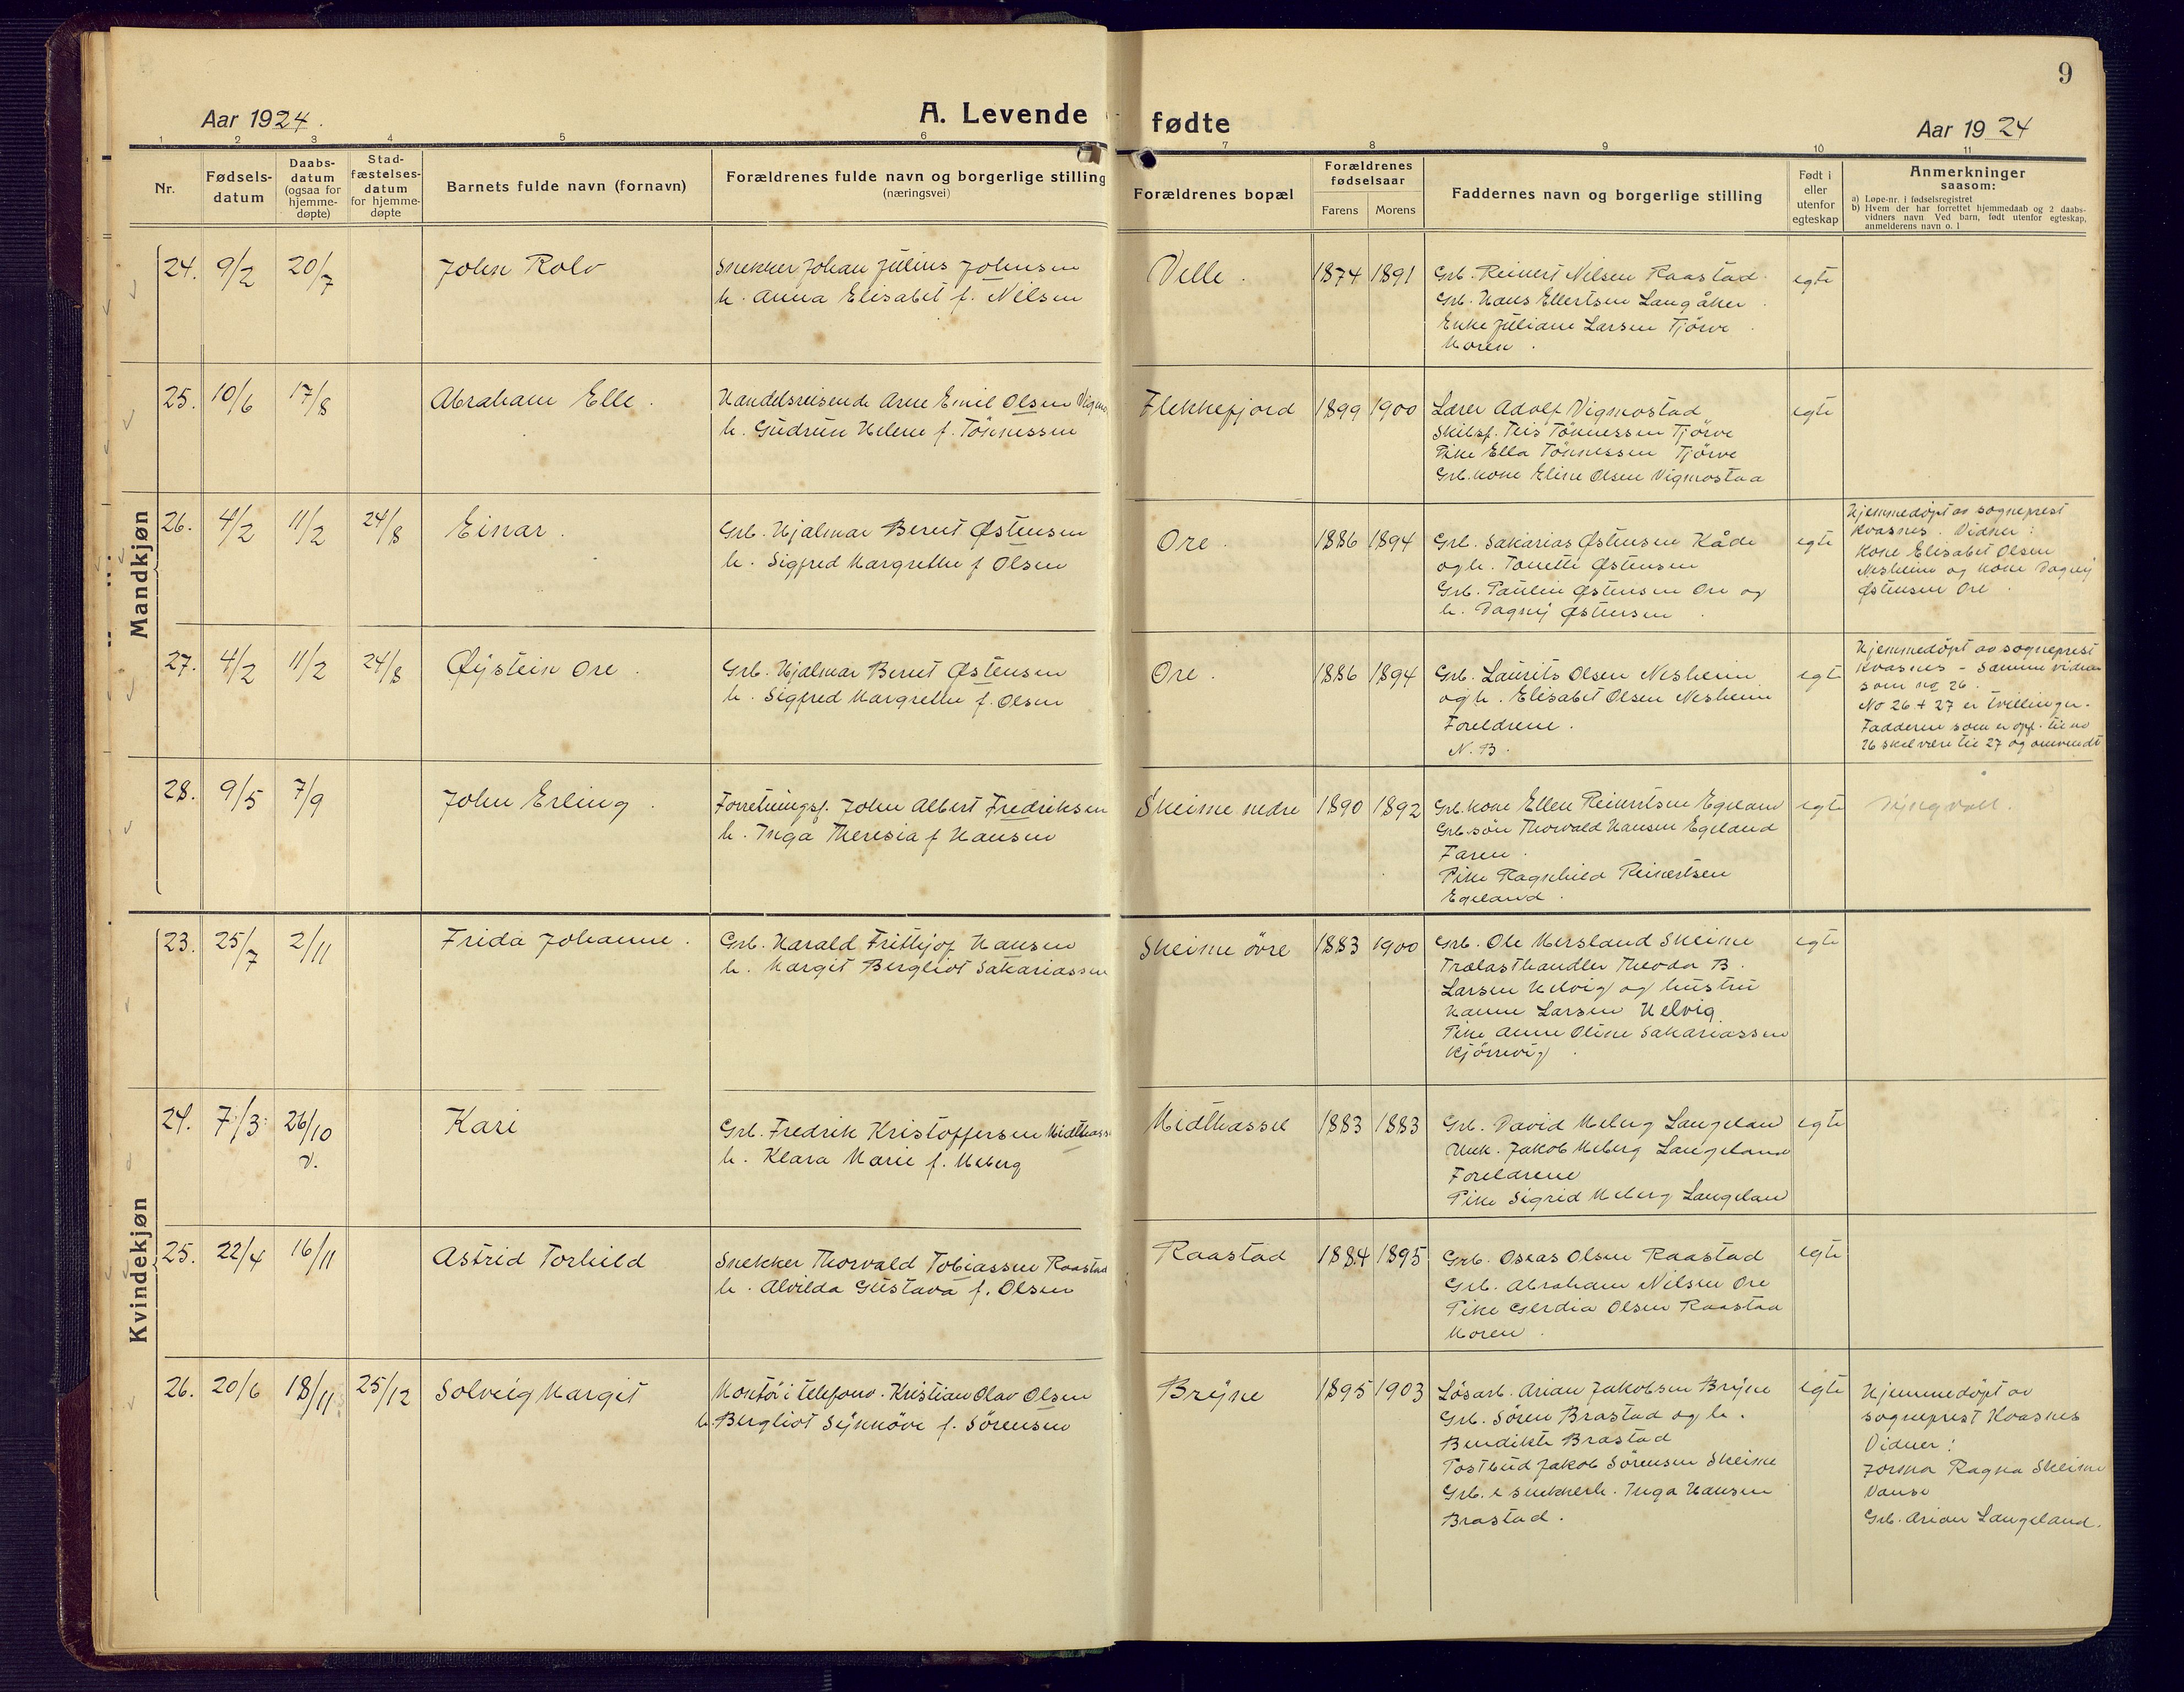 9
Aar 1924.
A. Levende fødte
Aar 1924
1 2 3 4 5 6 7 8 9 10 11
Nr.
Fødsels-
datum
Daabs-
datum
(ogsaa for
hjemme-
døpte)
Stad-
fæstelses-
datum
for hjemme-
døpte
Barnets fulde navn (fornavn)
Forældrenes fulde navn og borgerlige stilling
(næringsvei)
Forældrenes bopæl
Forældrenes
fødselsaar
Farens Morens
Faddernes navn og borgerlige stilling
Født i
eller
utenfor
egteskap
Anmerkninger
saasom:
a) Løpe-nr. i fødselsregistret
b) Hvem der har forrettet hjemmedaab og 2 daabs-
vidners navn Ved barn, født utenfor egteskap,
anmelderens navn o. l
Mandkjøn
24. 9/2 20/7 John Rolv
Snekker Johan Julius Johnsen
h. Anna Elisabet f. Nilsen
Velle. 1874 1891
Grb. Reinert Nilsen Raastad.
Grb. Hans Ellertsen Langåker
Enke Juliane Larsen Tjörve
Moren.
egte
25. 10/6 17/8 Abraham Elle.
Handelsreisende Arne Emil Olsen
h. Gudrun Helene f. Tönnessen
Flekkefjord 1899 1900
Lærer Adolf Vigmostad
Skibsf. Teis Tönnessen Tjörve
Pike Ella Tönnessen Tjörve
Grb. kone Eline Olsen Vigmostad
egte
26. 4/2 11/2 24/8 Einar.
Grb. Hjalmar Berent Østensen
h. Sigfred Margrethe f Olsen
Ore. 1886 1894
Grb. Sakarias Østensen Kåde
og h. Tonetti Østensen
Grb. Paulin Østensen Ore og
h. Dagny Østensen.
egte
Hjemmedöpt av sogneprest
Kvasnes. Vidner:
Kone Elisabet Olsen
Nesheim og kone Dagny
Østensen Ore.
27. 4/2 11/2 24/8 Øystein Ore.
Grb. Hjalmar Berent Østensen
h. Sigfred Margrethe f. Olsen
Ore. 1886 1894
Grb. Laurits Olsen Nesheim
og h. Elisabet Olsen Nesheim
Foreldrene.
N.B.
egte
Hjemmedöpt av sogneprest
Kvasnes - Samme vidner
som no 26.
No 26 + 27 er tvillinger.
Fadderne som er opf. til no
26 skal være til 27 og omvendt
28. 9/5 7/9 John Erling.
Forretningsf. John Albert Fredriksen
h. Inga Theresia f Hansen
Skeime nedre 1890 1892
Grb. kone Ellen Reinertsen Egeland
Grb.sön Thorvald Hansen Egeland
Faren.
Pike Ragnhild Reinertsen
Egeland.
egte
Kvindekjøn
23. 25/7 2/11 Frida Johanne.
Grb. Harald Frithjof Hansen
h. Margit Bergliot Sakariassen
Skeime övre 1883 1900
Grb. Ole Mersland Skeime
Trælasthandler Theodor B.
Larsen Helvig og hustru
Hanne Larsen Helvig
Pike Anne Oline Sakariassen
Kjörrevig.
egte
24. 7/3 26/10 Kari
V.
Grb. Fredrik Kristoffersen Midthass
h. Klara Marie f. Meberg
Midthassel 1883 1883
Grb. David Meberg Langeland
Unk. Jakob Meberg Langeland
Foreldrene
Pike Sigrid Meberg Langeland
egte
25. 22/4 16/11 Astrid Torhild
Snekker Thorvald Tobiassen Raastad
h. Alvilda Gustava f. Olsen
Raastad 1884 1895
Grb. Oskar Olsen Raastad
Grb. Abraham Nilsen Ore
Pike Gerdia Olsen Raastad
Moren.
egte
26. 20/6 18/11 25/12 Solveig Margit
Montör i telefonv. Kristian Olav Olsen
h. Bergliot Synnöve f. Sörensen
Bryne 1895 1903
Lösarb. Arian Jakobsen Bryne
Grb. Sören Brastad og h.
Bendikte Brastad
Postbud Jakob Sörensen Skeime
Grb. & snekkerh. Inga Hansen
Brastad.
egte
Hjemmedöpt av
sogneprest Kvasnes
Vidner:
Jorma Ragna Skeime
Vanse
Grb. Arian Langeland.